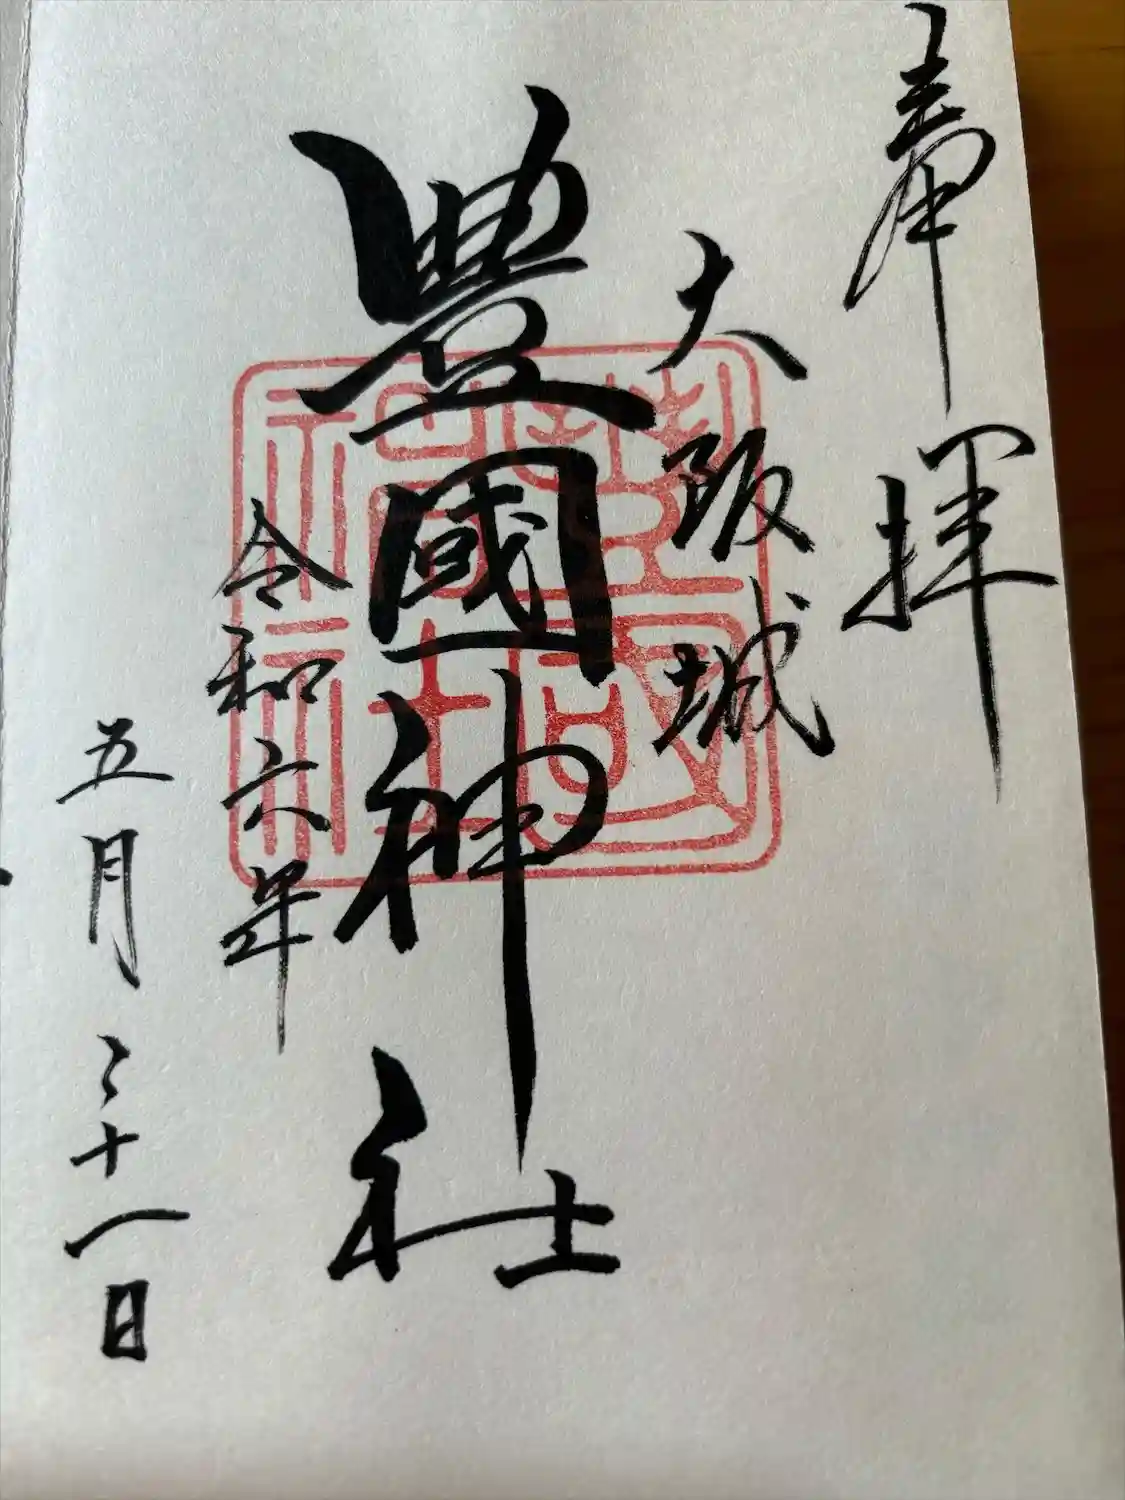 奉拝
大阪城
豊國神社
豊國神社
令和六年
五月二十一日